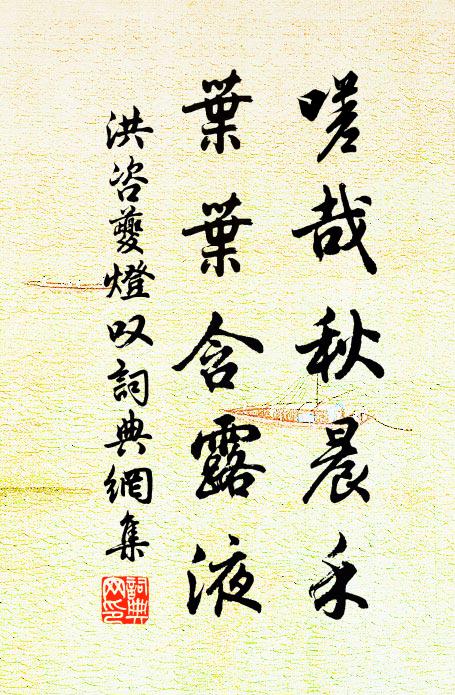 嗟哉秋晨禾
葉葉含露液
洪咨夔燈叹詞典網集
詞典網印